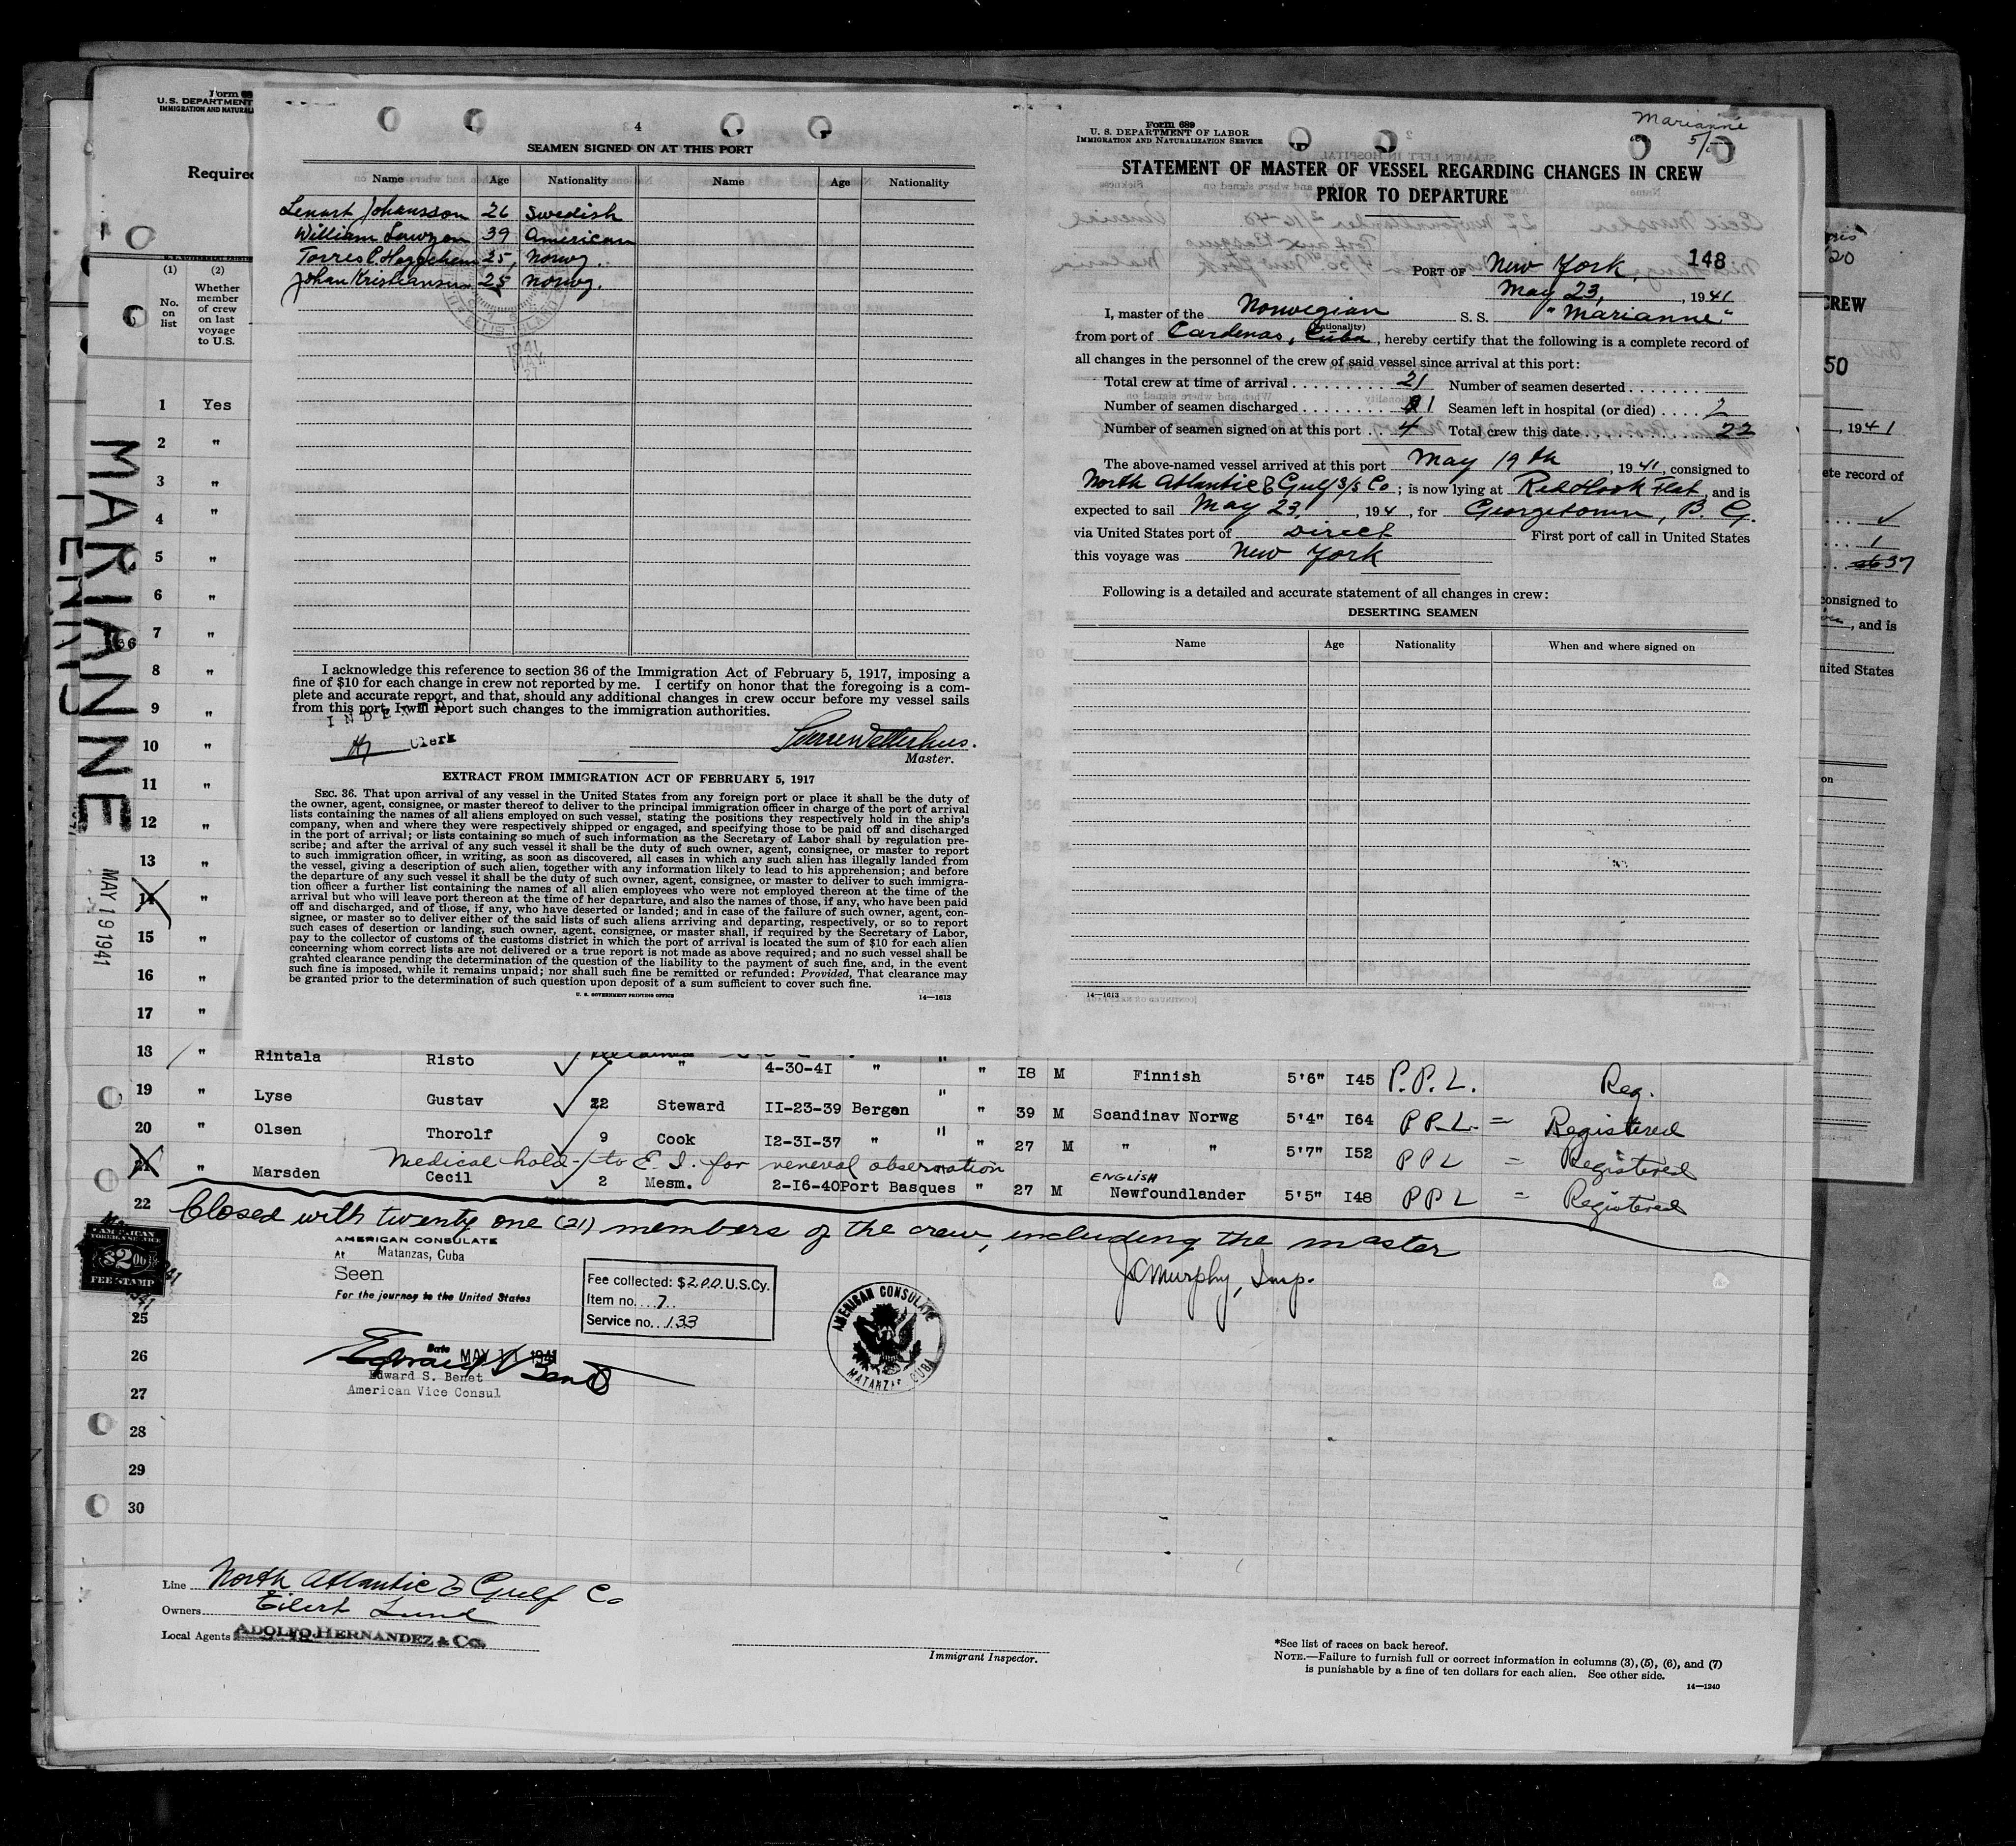 Form 68
U. S. DEPARTMENT
IMMIGRATION AND NATURALI
Required
(1) (2)
No. on list
Whether member of crew on last voyage to U.S.
1 Yes
2 "
3 "
4 "
5 "
6 "
7 "
8 "
9 "
10 "
11 "
12 "
13 "
14 "
15 "
16 "
17 "
MARIANNE
MAY 19 1941
4
SEAMEN SIGNED ON AT THIS PORT
Name Age Nationality Name Age Nationality
Lenart Johansson 26 Swedish
William Lawzon 39 American
25, Norwg.
Johan Kristiansen 25 Norwg.
1941
MAY
I acknowledge this reference to section 36 of the Immigration Act of February 5, 1917, imposing a
fine of $10 for each change in crew not reported by me. I certify on honor that the foregoing is a com-
plete and accurate report, and that, should any additional changes in crew occur before my vessel sails
from this port, I will report such changes to the immigration authorities.
INDEXED
Clerk
Master.
EXTRACT FROM IMMIGRATION ACT OF FEBRUARY 5, 1917
SEC. 36. That upon arrival of any vessel in the United States from any foreign port or place it shall be the duty of
the owner, agent, consignee, or master thereof to deliver to the principal immigration officer in charge of the port of arrival
lists containing the names of all aliens employed on such vessel, stating the positions they respectively hold in the ship's
company, when and where they were respectively shipped or engaged, and specifying those to be paid off and discharged
in the port of arrival; or lists containing so much of such information as the Secretary of Labor shall by regulation pre-
scribe; and after the arrival of any such vessel it shall be the duty of such owner, agent, consignee, or master to report
to such immigration officer, in writing, as soon as discovered, all cases in which any such alien has illegally landed from
the vessel, giving a description of such alien, together with any information likely to lead to his apprehension; and before
the departure of any such vessel it shall be the duty of such owner, agent, consignee, or master to deliver to such immigra-
tion officer a further list containing the names of all alien employees who were not employed thereon at the time of the
arrival but who will leave port thereon at the time of her departure, and also the names of those, if any, who have been paid
off and discharged, and of those, if any, who have deserted or landed; and in case of the failure of such owner, agent, con-
signee, or master so to deliver either of the said lists of such aliens arriving and departing, respectively, or so to report
such cases of desertion or landing, such owner, agent, consignee, or master shall, if required by the Secretary of Labor,
pay to the collector of customs of the customs district in which the port of arrival is located the sum of $10 for each alien
concerning whom correct lists are not delivered or a true report is not made as above required; and no such vessel shall be
granted clearance pending the determination of the question of the liability to the payment of such fine, and, in the event
such fine is imposed, while it remains unpaid; nor shall such fine be remitted or refunded: Provided, That clearance may
be granted prior to the determination of such question upon deposit of a sum sufficient to cover such fine.
U. S. GOVERNMENT PRINTING OFFICE 14—1613
Marianne
5/
Form 689
U. S. DEPARTMENT OF LABOR
IMMIGRATION AND NATURALIZATION SERVICE
STATEMENT OF MASTER OF VESSEL REGARDING CHANGES IN CREW
PRIOR TO DEPARTURE
148
PORT OF New York,
May 23, , 1941
I, master of the Norwegian S. S. "Marianne"
(Nationality)
from port of Cardenas, Cuba, hereby certify that the following is a complete record of
all changes in the personnel of the crew of said vessel since arrival at this port:
Total crew at time of arrival 21 Number of seamen deserted
Number of seamen discharged 1 Seamen left in hospital (or died) 2
Number of seamen signed on at this port 4 Total crew this date 22
The above-named vessel arrived at this port May 19th, 1941, consigned to
North Atlantic & Gulf S/S Co; is now lying at Red Hook Flat, and is
expected to sail May 23, , 194 , for Georgetown, B. G.
via United States port of Direct First port of call in United States
this voyage was New York
Following is a detailed and accurate statement of all changes in crew:
DESERTING SEAMEN
Name Age Nationality When and where signed on
14—1613
CREW
50
, 1941
ete record of
1
37
consigned to
, and is
nited States
on
18 " Rintala Risto " 4-30-41 " " " 18 M Finnish 5'6" 145 P.P.L. Reg.
19 " Lyse Gustav 22 Steward 11-23-39 Bergen " " 39 M Scandinav Norwg 5'4" 164 PPL = Registered
20 " Olsen Thorolf 9 Cook 12-31-37 " " " 27 M " " 5'7" 152 PPL = Registered
Medical hold - to E. I. for veneral observation
21 " Marsden Cecil 2 Mesm. 2-16-40 Port Basques " 27 M ENGLISH Newfoundlander 5'5" 148 PPL = Registered
22
Closed with twenty one (21) members of the crew, including the master
J Murphy, Insp.
AMERICAN CONSULATE
At Matanzas, Cuba
Seen
For the journey to the United States
Date MAY 1941
Edward S. Benet
American Vice Consul
AMERICAN
FOREIGN SERVICE
$2.00
FEE STAMP
Fee collected: $2.00.U.S.Cy.
Item no....7..
Service no...133
AMERICAN CONSULATE
MATANZAS, CUBA
25
26
27
28
29
30
Line North Atlantic & Gulf Co
Owners Eilert Lund
Local Agents ADOLFO HERNANDEZ & Co.
Immigrant Inspector.
*See list of races on back hereof.
NOTE.—Failure to furnish full or correct information in columns (3), (5), (6), and (7)
is punishable by a fine of ten dollars for each alien. See other side.
14—1240